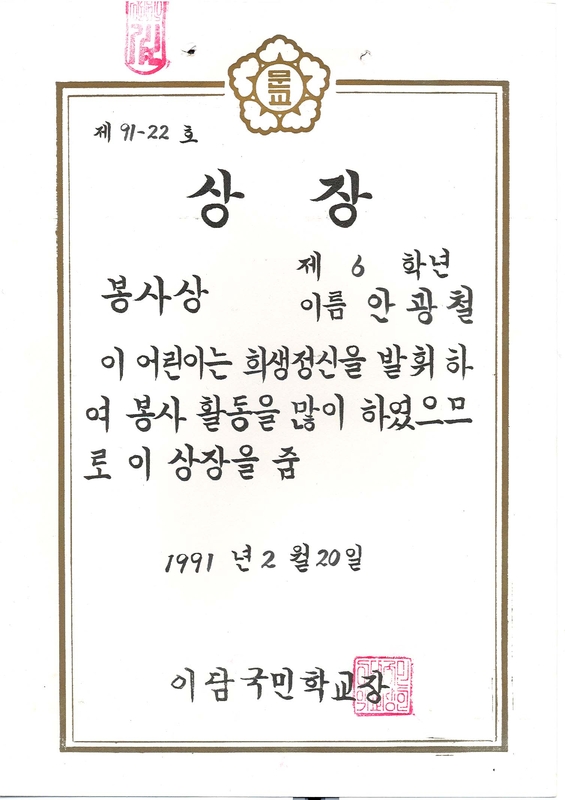 문교
제 91-22 호
상 장
제 6 학년
봉사상
이름 안광철
이 어린이는 희생정신을 발휘 하
여 봉사 활동을 많이 하였으므
로 이 상장을 줌
1991 년 2 월 20 일
이담국민학교장